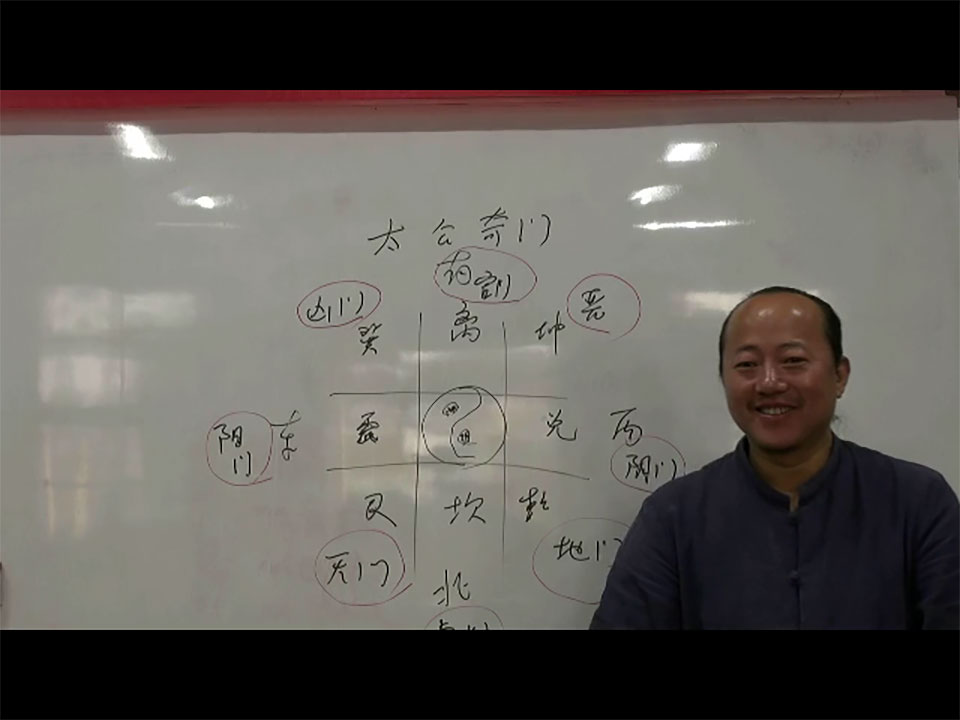 太公奇门
南 富门
凶门 恶
巽 离 坤
阳门 东 震 兑 西 阴门
艮 坎 乾
天门 地门
北